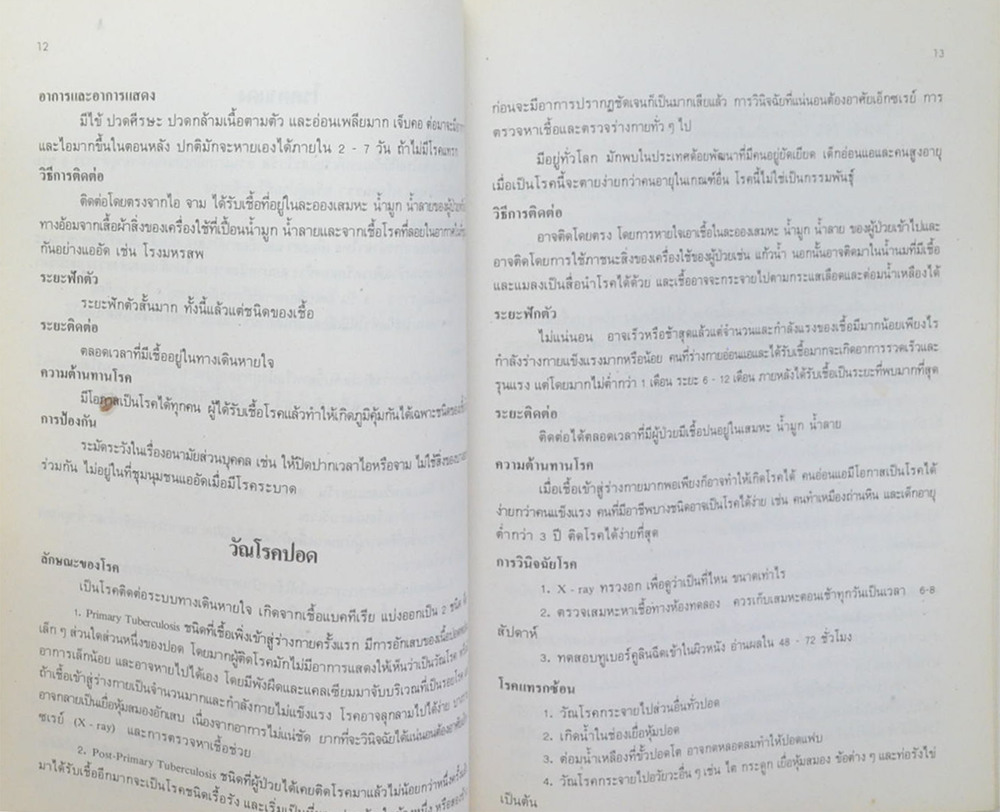 12
อาการและอาการแสดง
มีไข้ ปวดศีรษะ ปวดกล้ามเนื้อตามตัว และอ่อนเพลียมาก เจ็บคอ ต่อมาจะมี
และไอมากขึ้นในตอนหลัง ปกติมักจะหายเองได้ภายใน 2 - 7 วัน ถ้าไม่มีโรคแทรก
วิธีการติดต่อ
ติดต่อโดยตรงจากไอ จาม ได้รับเชื้อที่อยู่ในละอองเสมหะ น้ำมูก น้ำลายของผู้ป่วย
ทางอ้อมจากเสื้อผ้าสิ่งของเครื่องใช้ที่เปื้อนน้ำมูก น้ำลายและจากเชื้อโรคที่ลอยในอากาศ
กันอย่างแออัด เช่น โรงมหรสพ
ระยะฟักตัว
ระยะฟักตัวสั้นมาก ทั้งนี้แล้วแต่ชนิดของเชื้อ
ระยะติดต่อ
ตลอดเวลาที่มีเชื้ออยู่ในทางเดินหายใจ
ความต้านทานโรค
มีโอกาสเป็นโรคได้ทุกคน ผู้ได้รับเชื้อโรคแล้วทำให้เกิดภูมิคุ้มกันได้เฉพาะชนิดของ
การป้องกัน
ระมัดระวังในเรื่องอนามัยส่วนบุคคล เช่น ให้ปิดปากเวลาไอหรือจาม ไม่ใช้สิ่งของ
ร่วมกัน ไม่อยู่ในที่ชุมนุมชนแออัดเมื่อมีโรคระบาด
วัณโรคปอด
ลักษณะของโรค
เป็นโรคติดต่อระบบทางเดินหายใจ เกิดจากเชื้อแบคทีเรีย แบ่งออกเป็น 2 ชนิด
1. Primary Tuberculosis ชนิดที่เชื้อเพิ่งเข้าสู่ร่างกายครั้งแรก มีการอักเสบของเนื้อปอด
เล็ก ๆ ส่วนใดส่วนหนึ่งของปอด โดยมากผู้ติดโรคมักไม่มีอาการแสดงให้เห็นว่าเป็นวัณโรค
อาการเล็กน้อย และอาจหายไปได้เอง โดยมีพังผืดและแคลเซียมมาจับบริเวณที่เป็นรอยโรค
ถ้าเชื้อเข้าสู่ร่างกายเป็นจำนวนมากและกำลังกายไม่แข็งแรง โรคอาจลุกลามไปได้ง่าย
อาจกลายเป็นเยื่อหุ้มสมองอักเสบ เนื่องจากอาการไม่แน่ชัด ยากที่จะวินิจฉัยได้แน่นอนต้องอาศัย
ซเรย์ (X - ray) และการตรวจหาเชื้อช่วย
2. Post-Primary Tuberculosis ชนิดที่ผู้ป่วยได้เคยติดโรคมาแล้วไม่น้อยกว่าหนึ่งครั้ง
มาได้รับเชื้ออีกมากจะเป็นโรคชนิดเรื้อรัง และเริ่มเป็นที่
13
ก่อนจะมีอาการปรากฏชัดเจนก็เป็นมากเสียแล้ว การวินิจฉัยที่แน่นอนต้องอาศัยเอ็กซเรย์ การ
ตรวจหาเชื้อและตรวจร่างกายทั่ว ๆ ไป
มีอยู่ทั่วโลก มักพบในประเทศด้อยพัฒนาที่มีคนอยู่ยัดเยียด เด็กอ่อนแอและคนสูงอายุ
เมื่อเป็นโรคนี้จะตายง่ายกว่าคนอายุในเกณฑ์อื่น โรคนี้ไม่ใช่เป็นกรรมพันธุ์
วิธีการติดต่อ
อาจติดโดยตรง โดยการหายใจเอาเชื้อในละอองเสมหะ น้ำมูก น้ำลาย ของผู้ป่วยเข้าไปและ
อาจติดโดยการใช้ภาชนะสิ่งของเครื่องใช้ของผู้ป่วยเช่น แก้วน้ำ นอกนั้นอาจติดมาในน้ำนมที่มีเชื้อ
และแมลงเป็นสื่อนำโรคได้ด้วย และเชื้ออาจจะกระจายไปตามกระแสเลือดและต่อมน้ำเหลืองได้
ระยะฟักตัว
ไม่แน่นอน อาจเร็วหรือช้าสุดแล้วแต่จำนวนและกำลังแรงของเชื้อมีมากน้อยเพียงไร
กำลังร่างกายแข็งแรงมากหรือน้อย คนที่ร่างกายอ่อนแอและได้รับเชื้อมากจะเกิดอาการรวดเร็วและ
รุนแรง แต่โดยมากไม่ต่ำกว่า 1 เดือน ระยะ 6 - 12 เดือน ภายหลังได้รับเชื้อเป็นระยะที่พบมากที่สุด
ระยะติดต่อ
ติดต่อได้ตลอดเวลาที่มีผู้ป่วยมีเชื้อปนอยู่ในเสมหะ น้ำมูก น้ำลาย
ความต้านทานโรค
เมื่อเชื้อเข้าสู่ร่างกายมากพอเพียงก็อาจทำให้เกิดโรคได้ คนอ่อนแอมีโอกาสเป็นโรคได้
ง่ายกว่าคนแข็งแรง คนที่มีอาชีพบางชนิดอาจเป็นโรคได้ง่าย เช่น คนทำเหมืองถ่านหิน และเด็กอายุ
ต่ำกว่า 3 ปี ติดโรคได้ง่ายที่สุด
การวินิจฉัยโรค
1. X - ray ทรวงอก เพื่อดูว่าเป็นที่ไหน ขนาดเท่าไร
2. ตรวจเสมหะหาเชื้อทางห้องทดลอง ควรเก็บเสมหะตอนเช้าทุกวันเป็นเวลา 6-8
สัปดาห์
3. ทดสอบทูเบอร์คูลินฉีดเข้าในผิวหนัง อ่านผลใน 48 - 72 ชั่วโมง
โรคแทรกซ้อน
1. วัณโรคกระจายไปส่วนอื่นทั่วปอด
2. เกิดน้ำในช่องเยื่อหุ้มปอด
3. ต่อมน้ำเหลืองที่ขั้วปอดโต อาจกดหลอดลมทำให้ปอดแฟบ
4. วัณโรคกระจายไปอวัยวะอื่น ๆ เช่น ไต กระดูก เยื่อหุ้มสมอง ข้อต่าง ๆ และท่อรังไข่
เป็นต้น